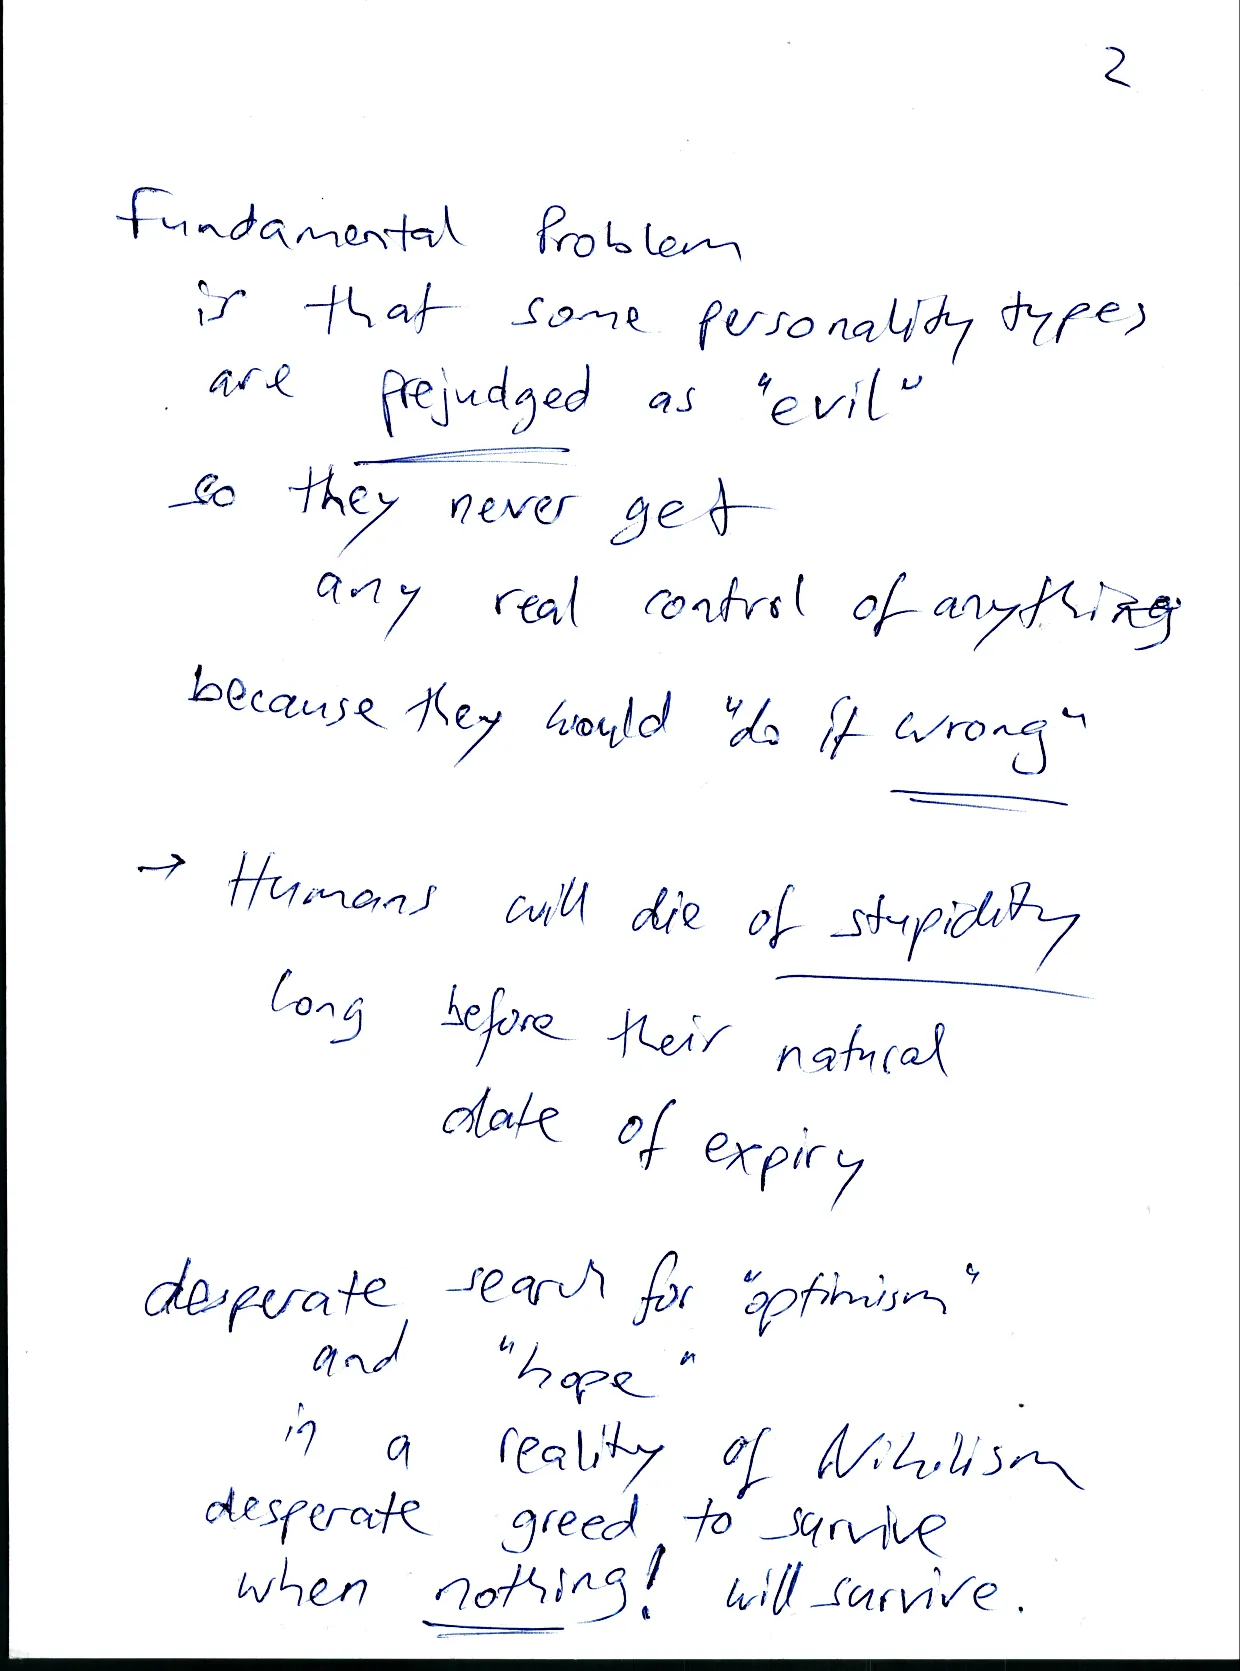 2
Fundamental Problem
is that some personality types
are prejudged as "evil"
so they never get
any real control of anything
because they would "do it wrong"
→ Humans will die of stupidity
long before their natural
date of expiry
desperate search for "optimism"
and "hope"
in a reality of Nihilism
desperate greed to survive
when nothing! will survive.